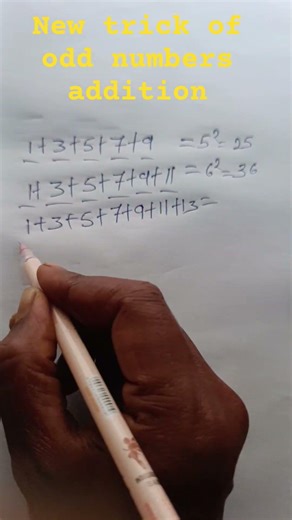 New trick of
odd numbers
addition
1+3+5+7+9 = 5² = 25
1+3+5+7+9+11 = 6² = 36
1+3+5+7+9+11+13 =